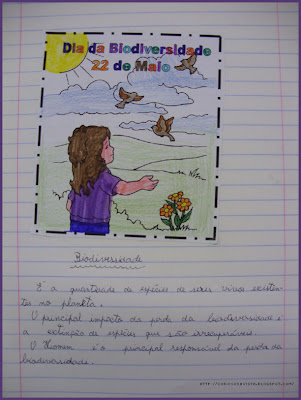 Dia da Biodiversidade
22 de Maio
Biodiversidade
É a quantidade de espécies de seres vivos existen-
tes no planeta.
O principal impacto da perda da biodiversidade é
a extinção de espécies que são irrecuperáveis.
O Homem é o principal responsável da perda da
biodiversidade.